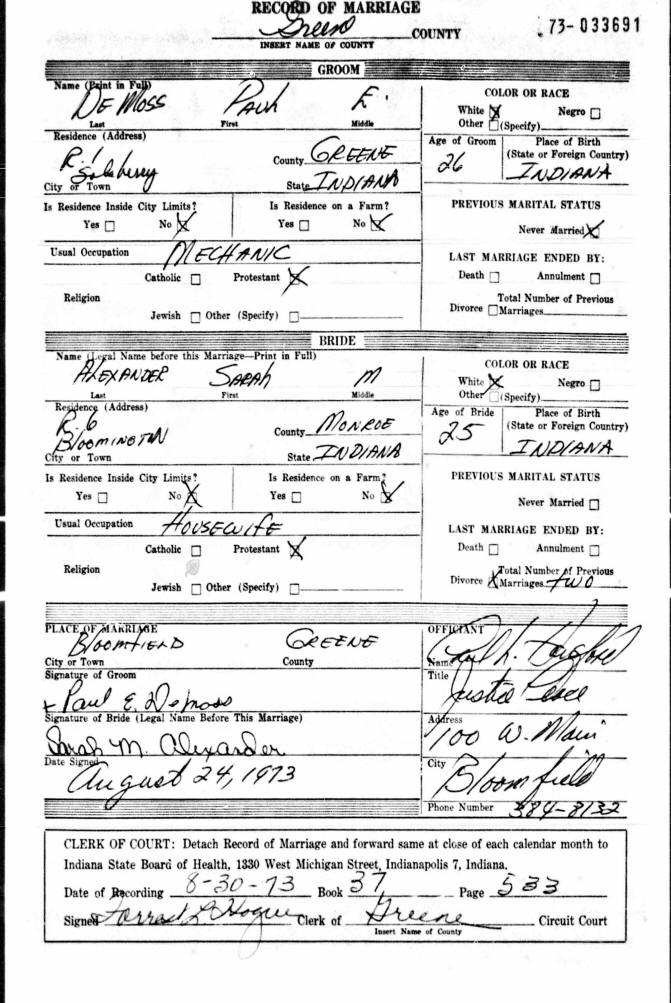 RECORD OF MARRIAGE
Greene COUNTY
73-033691
INSERT NAME OF COUNTY
GROOM
Name (Print in Full)
DEMOSS PAUL E.
Last First Middle
COLOR OR RACE
White ☒ Negro ☐
Other ☐ (Specify)
Residence (Address)
R. 1
Solsberry
City or Town
County GREENE
State INDIANA
Age of Groom
26
Place of Birth
(State or Foreign Country)
INDIANA
Is Residence Inside City Limits?
Yes ☐ No ☒
Is Residence on a Farm?
Yes ☐ No ☒
PREVIOUS MARITAL STATUS
Never Married ☒
Usual Occupation MECHANIC
LAST MARRIAGE ENDED BY:
Death ☐ Annulment ☐
Religion
Catholic ☐ Protestant ☒
Jewish ☐ Other (Specify) ☐
Divorce ☐ Total Number of Previous
Marriages
BRIDE
Name (Legal Name before this Marriage—Print in Full)
ALEXANDER SARAH M
Last First Middle
COLOR OR RACE
White ☒ Negro ☐
Other ☐ (Specify)
Residence (Address)
R. 6
BLOOMINGTON
City or Town
County MONROE
State INDIANA
Age of Bride
25
Place of Birth
(State or Foreign Country)
INDIANA
Is Residence Inside City Limits?
Yes ☐ No ☒
Is Residence on a Farm?
Yes ☐ No ☒
PREVIOUS MARITAL STATUS
Never Married ☐
Usual Occupation HOUSEWIFE
LAST MARRIAGE ENDED BY:
Death ☐ Annulment ☐
Religion
Catholic ☐ Protestant ☒
Jewish ☐ Other (Specify) ☐
Divorce ☒ Total Number of Previous
Marriages TWO
PLACE OF MARRIAGE
BLOOMFIELD GREENE
City or Town County
Signature of Groom
x Paul E. DeMoss
Signature of Bride (Legal Name Before This Marriage)
Sarah M. Alexander
Date Signed
August 24, 1973
OFFICIANT
Name L.
Title
Justice Peace
Address
100 W. Main
City
Bloomfield
Phone Number 384-8132
CLERK OF COURT: Detach Record of Marriage and forward same at close of each calendar month to
Indiana State Board of Health, 1330 West Michigan Street, Indianapolis 7, Indiana.
Date of Recording 8-30-73 Book 37 Page 533
Signed Forrest L Hogue Clerk of Greene Circuit Court
Insert Name of County